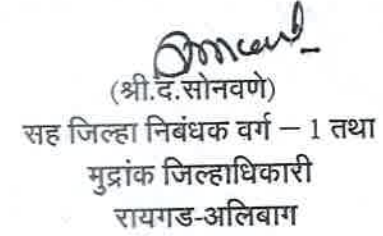 (श्री.द.सोनवणे)
सह जिल्हा निबंधक वर्ग – 1 तथा
मुद्रांक जिल्हाधिकारी
रायगड-अलिबाग